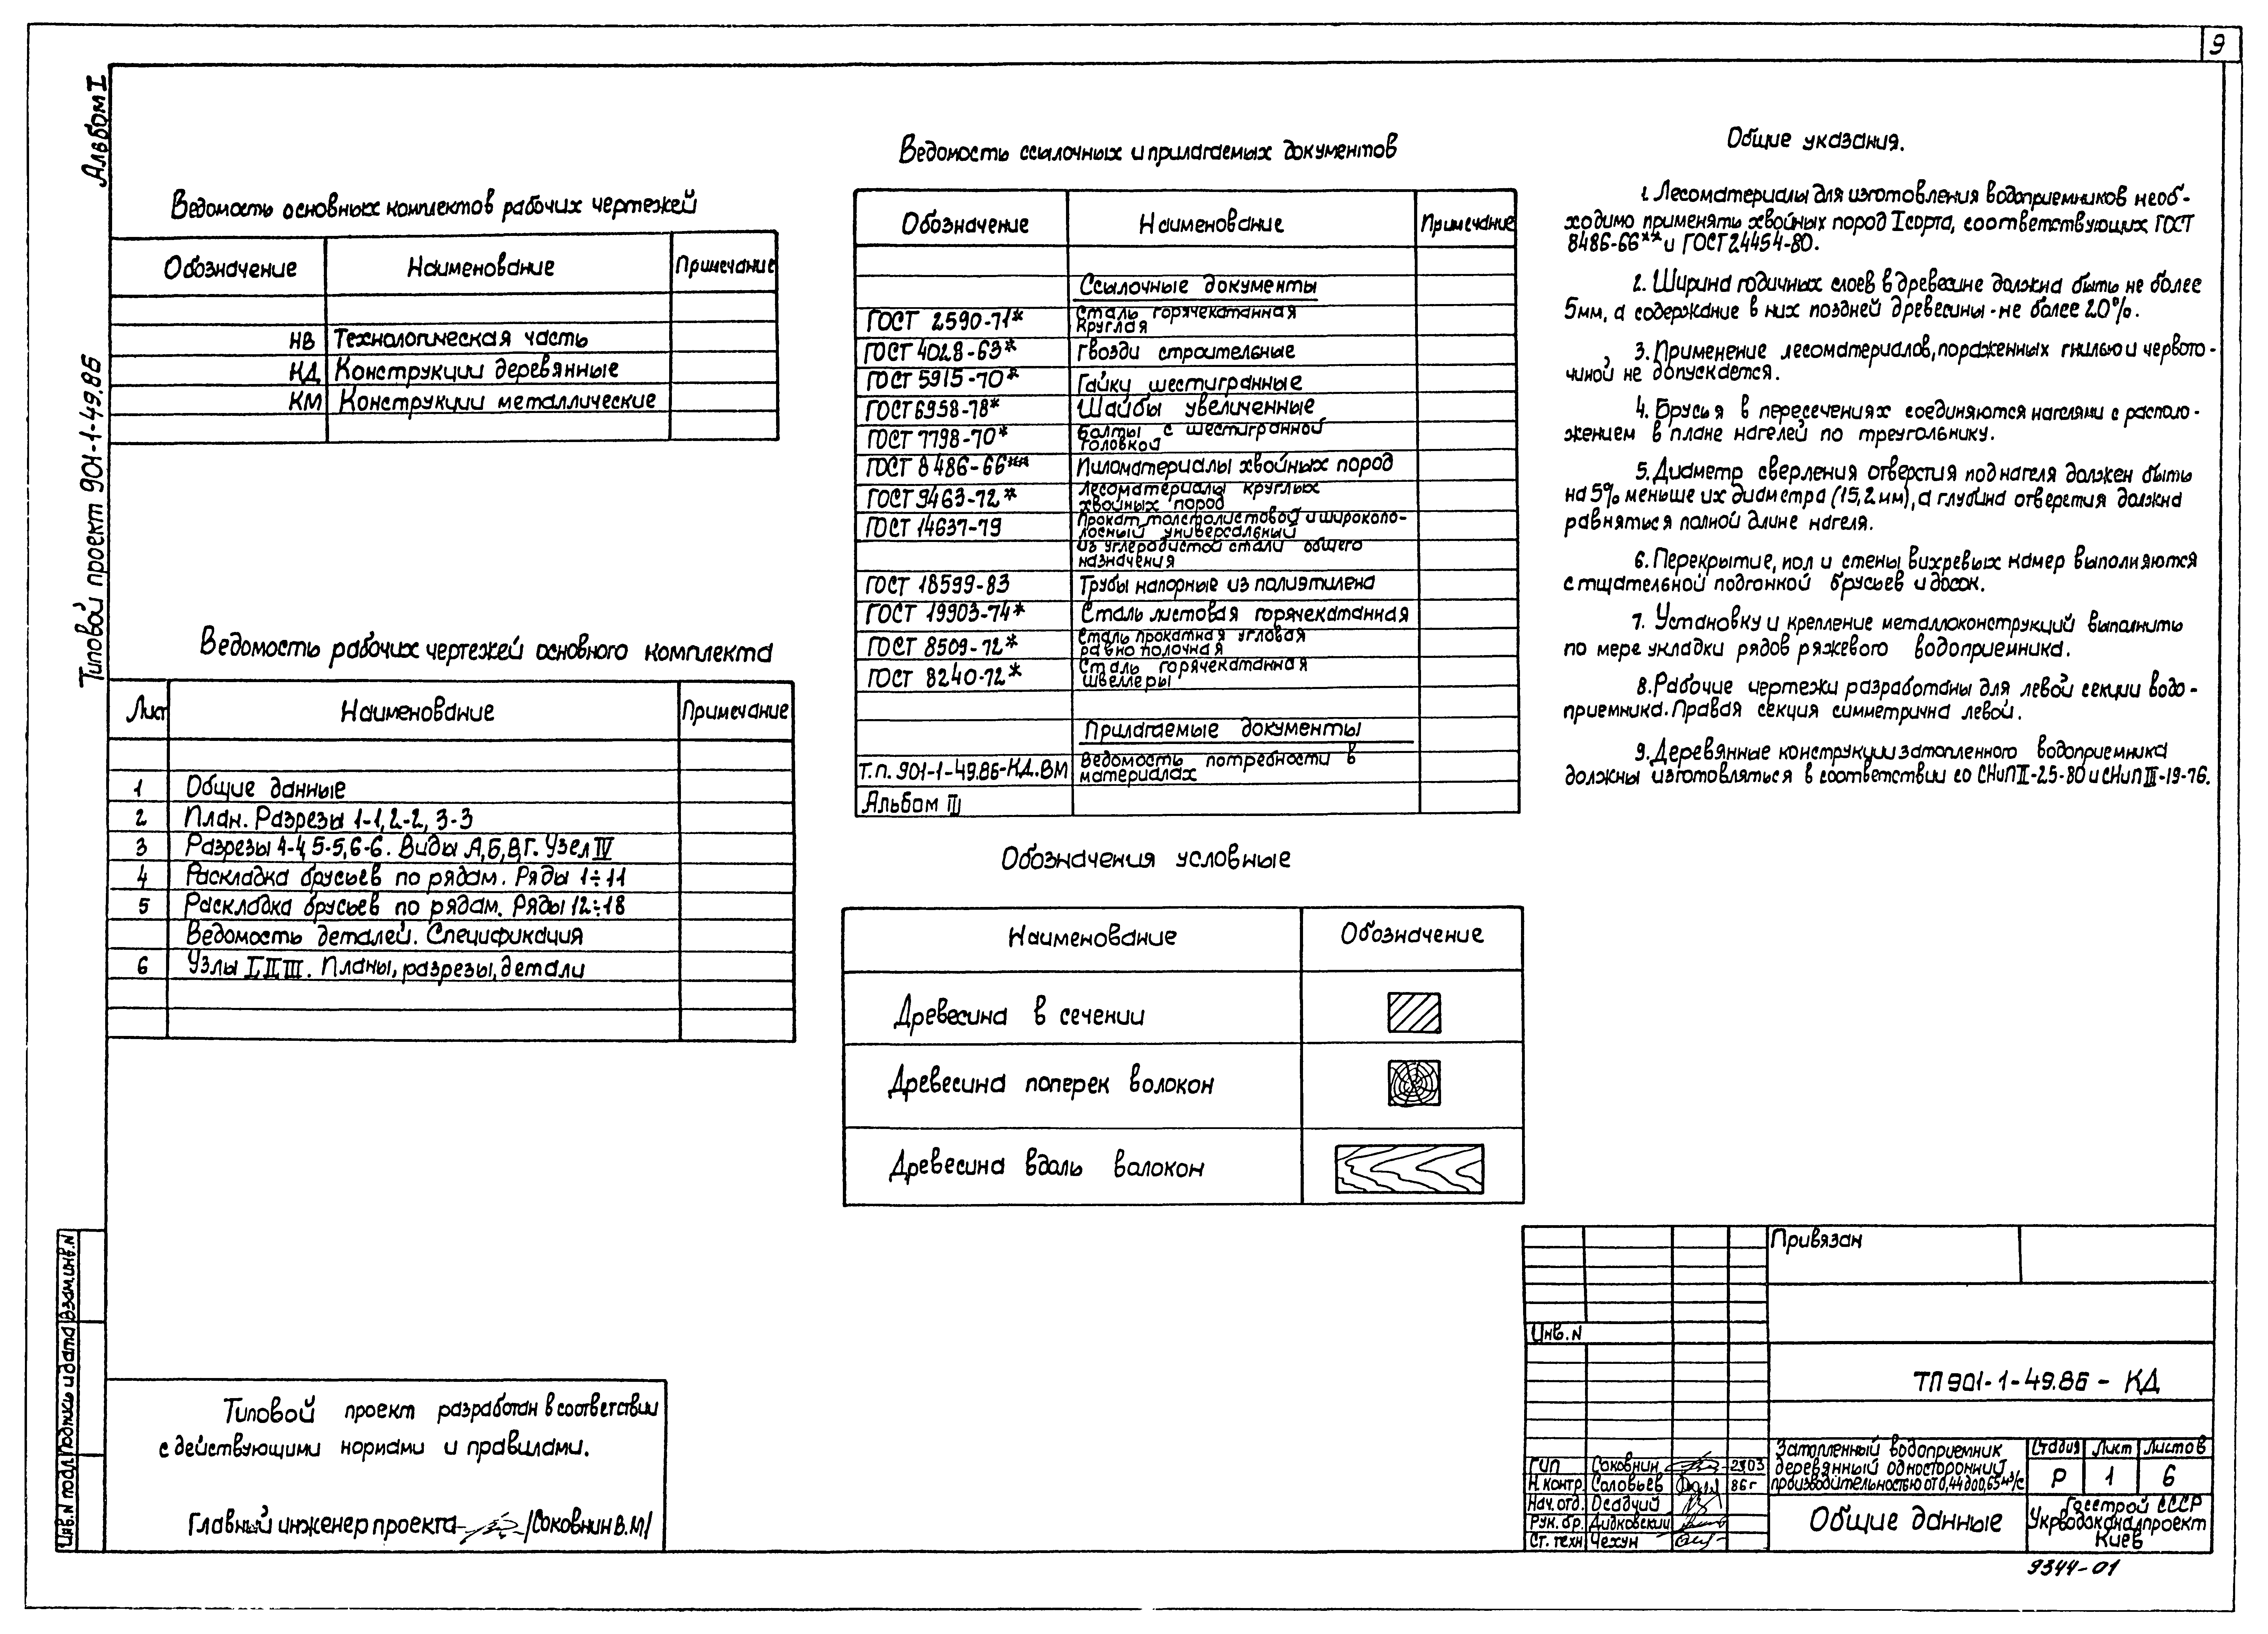 9
Альбом I
Типовой проект 901-1-49.86
Ведомость основных комплектов рабочих чертежей
Обозначение Наименование Примечание
НВ Технологическая часть
КД Конструкции деревянные
КМ Конструкции металлические
Ведомость рабочих чертежей основного комплекта
Лист Наименование Примечание
1 Общие данные
2 План. Разрезы 1-1, 2-2, 3-3
3 Разрезы 4-4, 5-5, 6-6. Виды А, Б, В, Г. Узел IV
4 Раскладка брусьев по рядам. Ряды 1÷11
5 Раскладка брусьев по рядам. Ряды 12÷18
Ведомость деталей. Спецификация
6 Узлы I, II, III. Планы, разрезы, детали
Ведомость ссылочных и прилагаемых документов
Обозначение Наименование Примечание
Ссылочные документы
ГОСТ 2590-71* Сталь горячекатанная
круглая
ГОСТ 4028-63* Гвозди строительные
ГОСТ 5915-70* Гайку шестигранные
ГОСТ 6958-78* Шайбы увеличенные
ГОСТ 7798-70* Болты с шестигранной
головкой
ГОСТ 8486-66** Пиломатериалы хвойных пород
ГОСТ 9463-72* Лесоматериалы круглых
хвойных пород
ГОСТ 14637-79 Прокат толстолистовой и широкопо-
лосный универсальный
из углеродистой стали общего
назначения
ГОСТ 18599-83 Трубы напорные из полиэтилена
ГОСТ 19903-74* Сталь листовая горячекатанная
ГОСТ 8509-72* Сталь прокатная угловая
равнополочная
ГОСТ 8240-72* Сталь горячекатанная
швеллеры
Прилагаемые документы
Т.п. 901-1-49.86-КД.ВМ Ведомость потребности в
материалах
Альбом III
Обозначения условные
Наименование Обозначение
Древесина в сечении
Древесина поперек волокон
Древесина вдоль волокон
Общие указания.
1. Лесоматериалы для изготовления водоприемников необ-
ходимо применять хвойных пород I сорта, соответствующих ГОСТ
8486-66** и ГОСТ 24454-80.
2. Ширина годичных слоев в древесине должна быть не более
5мм, а содержание в них поздней древесины - не более 20%.
3. Применение лесоматериалов, пораженных гнилью и червото-
чиной не допускается.
4. Брусья в пересечениях соединяются нагелями с располо-
жением в плане нагелей по треугольнику.
5. Диаметр сверления отверстия под нагеля должен быть
на 5% меньше их диаметра (15,2 мм), а глубина отверстия должна
равняться полной длине нагеля.
6. Перекрытие, пол и стены вихревых камер выполняются
с тщательной подгонкой брусьев и досок.
7. Установку и крепление металлоконструкций выполнить
по мере укладки рядов ряжевого водоприемника.
8. Рабочие чертежи разработаны для левой секции водо-
приемника. Правая секция симметрична левой.
9. Деревянные конструкции затопленного водоприемника
должны изготовляться в соответствии со СНиП II-25-80 и СНиП III-19-76.
Типовой проект разработан в соответствии
с действующими нормами и правилами.
Главный инженер проекта /Соковнин В.М/
Инв. N подл. Подпись и дата Взам. инв. N
Привязан
Инв. N
ТП 901-1-49.86 - КД
ГИП Соковнин 2303
Н. контр. Соловьев 86г
Нач. отд. Осадчий
Рук. бр. Дидковский
Ст. техн Чехун
Затопленный водоприемник
деревянный односторонний
производительностью от 0,44 до 0,65 м³/с
Стадия Лист Листов
Р 1 6
Общие данные
Госстрой СССР
Укрводоканалпроект
Киев
9344-01